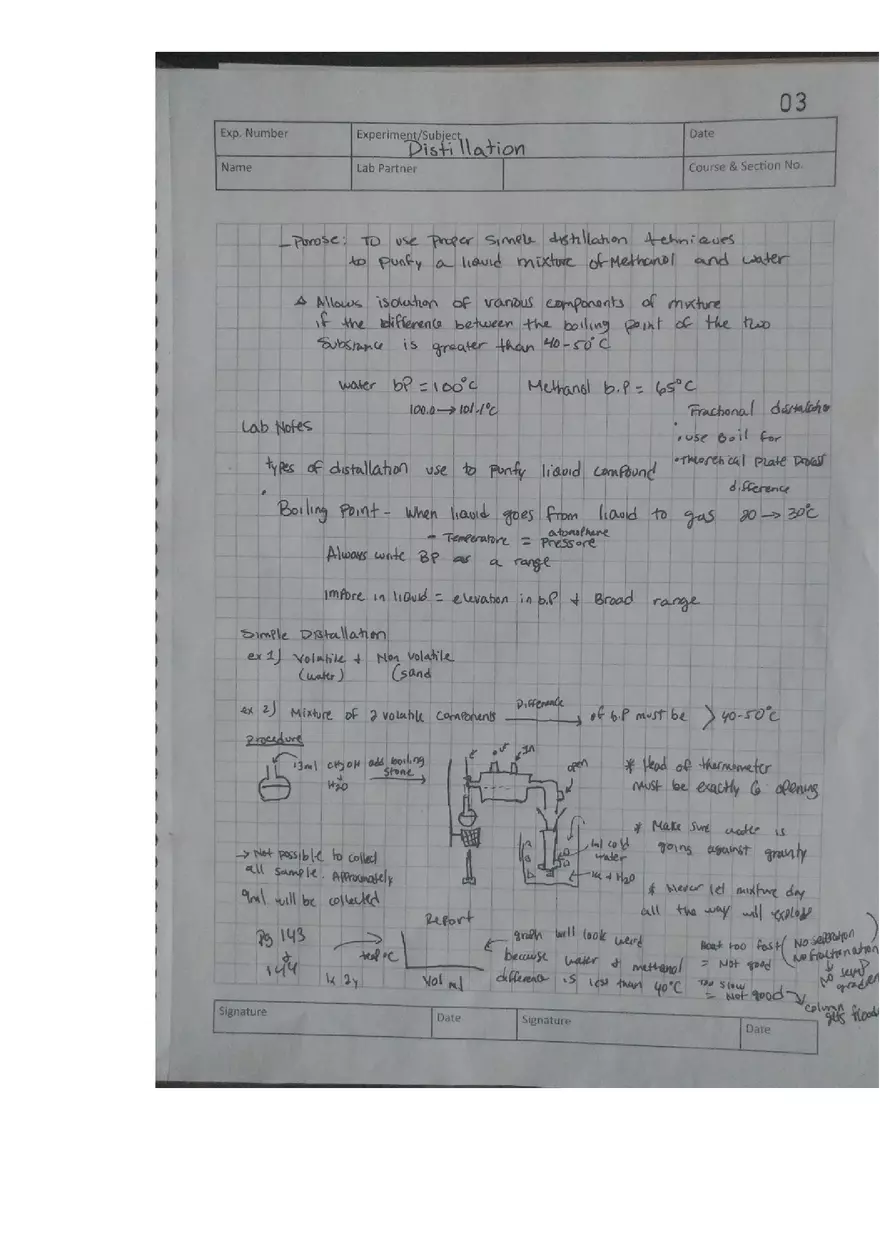 03
Exp. Number
Experiment/Subject
Distillation
Date
Name
Lab Partner
Course & Section No.
Porose: To use proper simple distillation tehniques
to purify a liquid mixture of Methanol and water
Allows isolation of various components of mixture
if the difference between the boiling point of the two
Substance is greater than 40-50°C
water bP = 100°C Methanol b.p = 65°C
100.0 → 101.1°C
Fractional distallation
Lab Notes
• use Boil for
types of distallation use to purify liquid compound
• Theoretical plate
difference
20 → 30°C
• Boiling Point - When liquid goes from liquid to gas
- Temperature = atomsphere pressure
Always write BP as a range
Impure in liquid = elevation in b.p & Broad range
Simple Distallation
ex 1) Volatile & Non volatile
(water) (sand
ex 2) Mixture of 2 volatile components Difference → of b.p must be > 40-50°C
Procedure
13ml CH3OH add boiling
& stone →
H2O
In
open
* Head of thermometer
must be exactly @ opening
* Make sure water is
going against gravity
1ml cold
water
+ H2O
→ Not possible to collect
all sample. Approximately
9ml will be collected
* Never let mixture dry
all the way will explode
Pg 143
&
144
Report
temp °C
Vol ml
graph will look weird
because water & methanol
difference is less than 40°C
Heat too fast (No seperation
= Not good No fractionation
No
gradient
Too slow
= Not good → column
gets flood
Signature
Date
Signature
Date